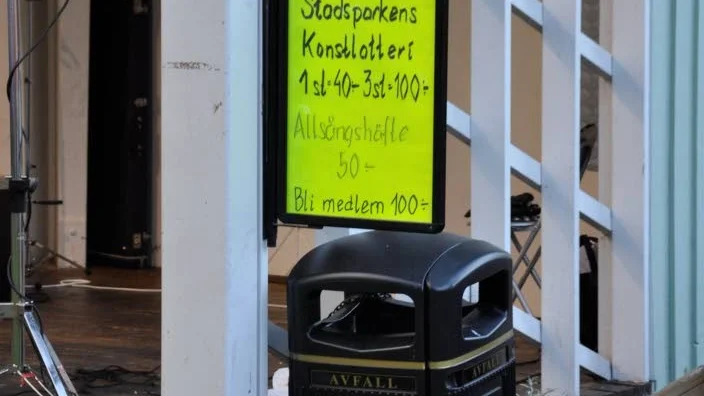 Stadsparkens
Konstlotteri
1 st=40:- 3st=100:-
Allsångshäfte
50:-
Bli medlem 100:-
AVFALL
AVFALL